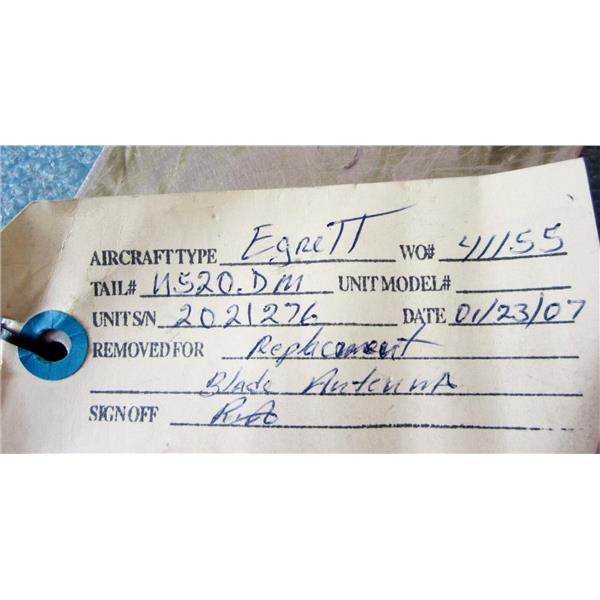 AIRCRAFT TYPE Egrett WO# 41155
TAIL# N520.DM UNIT MODEL#
UNIT S/N 2021276 DATE 01/23/07
REMOVED FOR Replacement
Blade Antenna
SIGN OFF